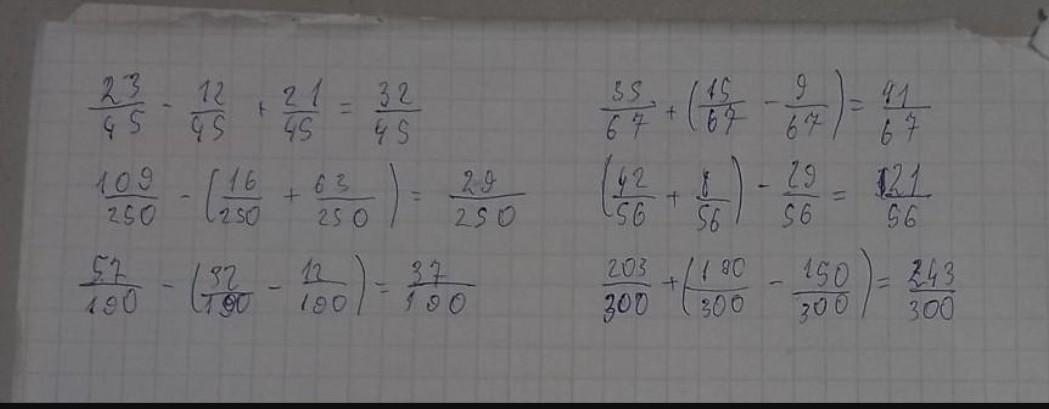 23/45 - 12/45 + 21/45 = 32/45
35/67 + (15/67 - 9/67) = 41/67
109/250 - (16/250 + 63/250) = 29/250
(42/56 + 8/56) - 29/56 = 21/56
57/190 - (32/190 - 12/190) = 37/190
203/300 + (190/300 - 150/300) = 243/300